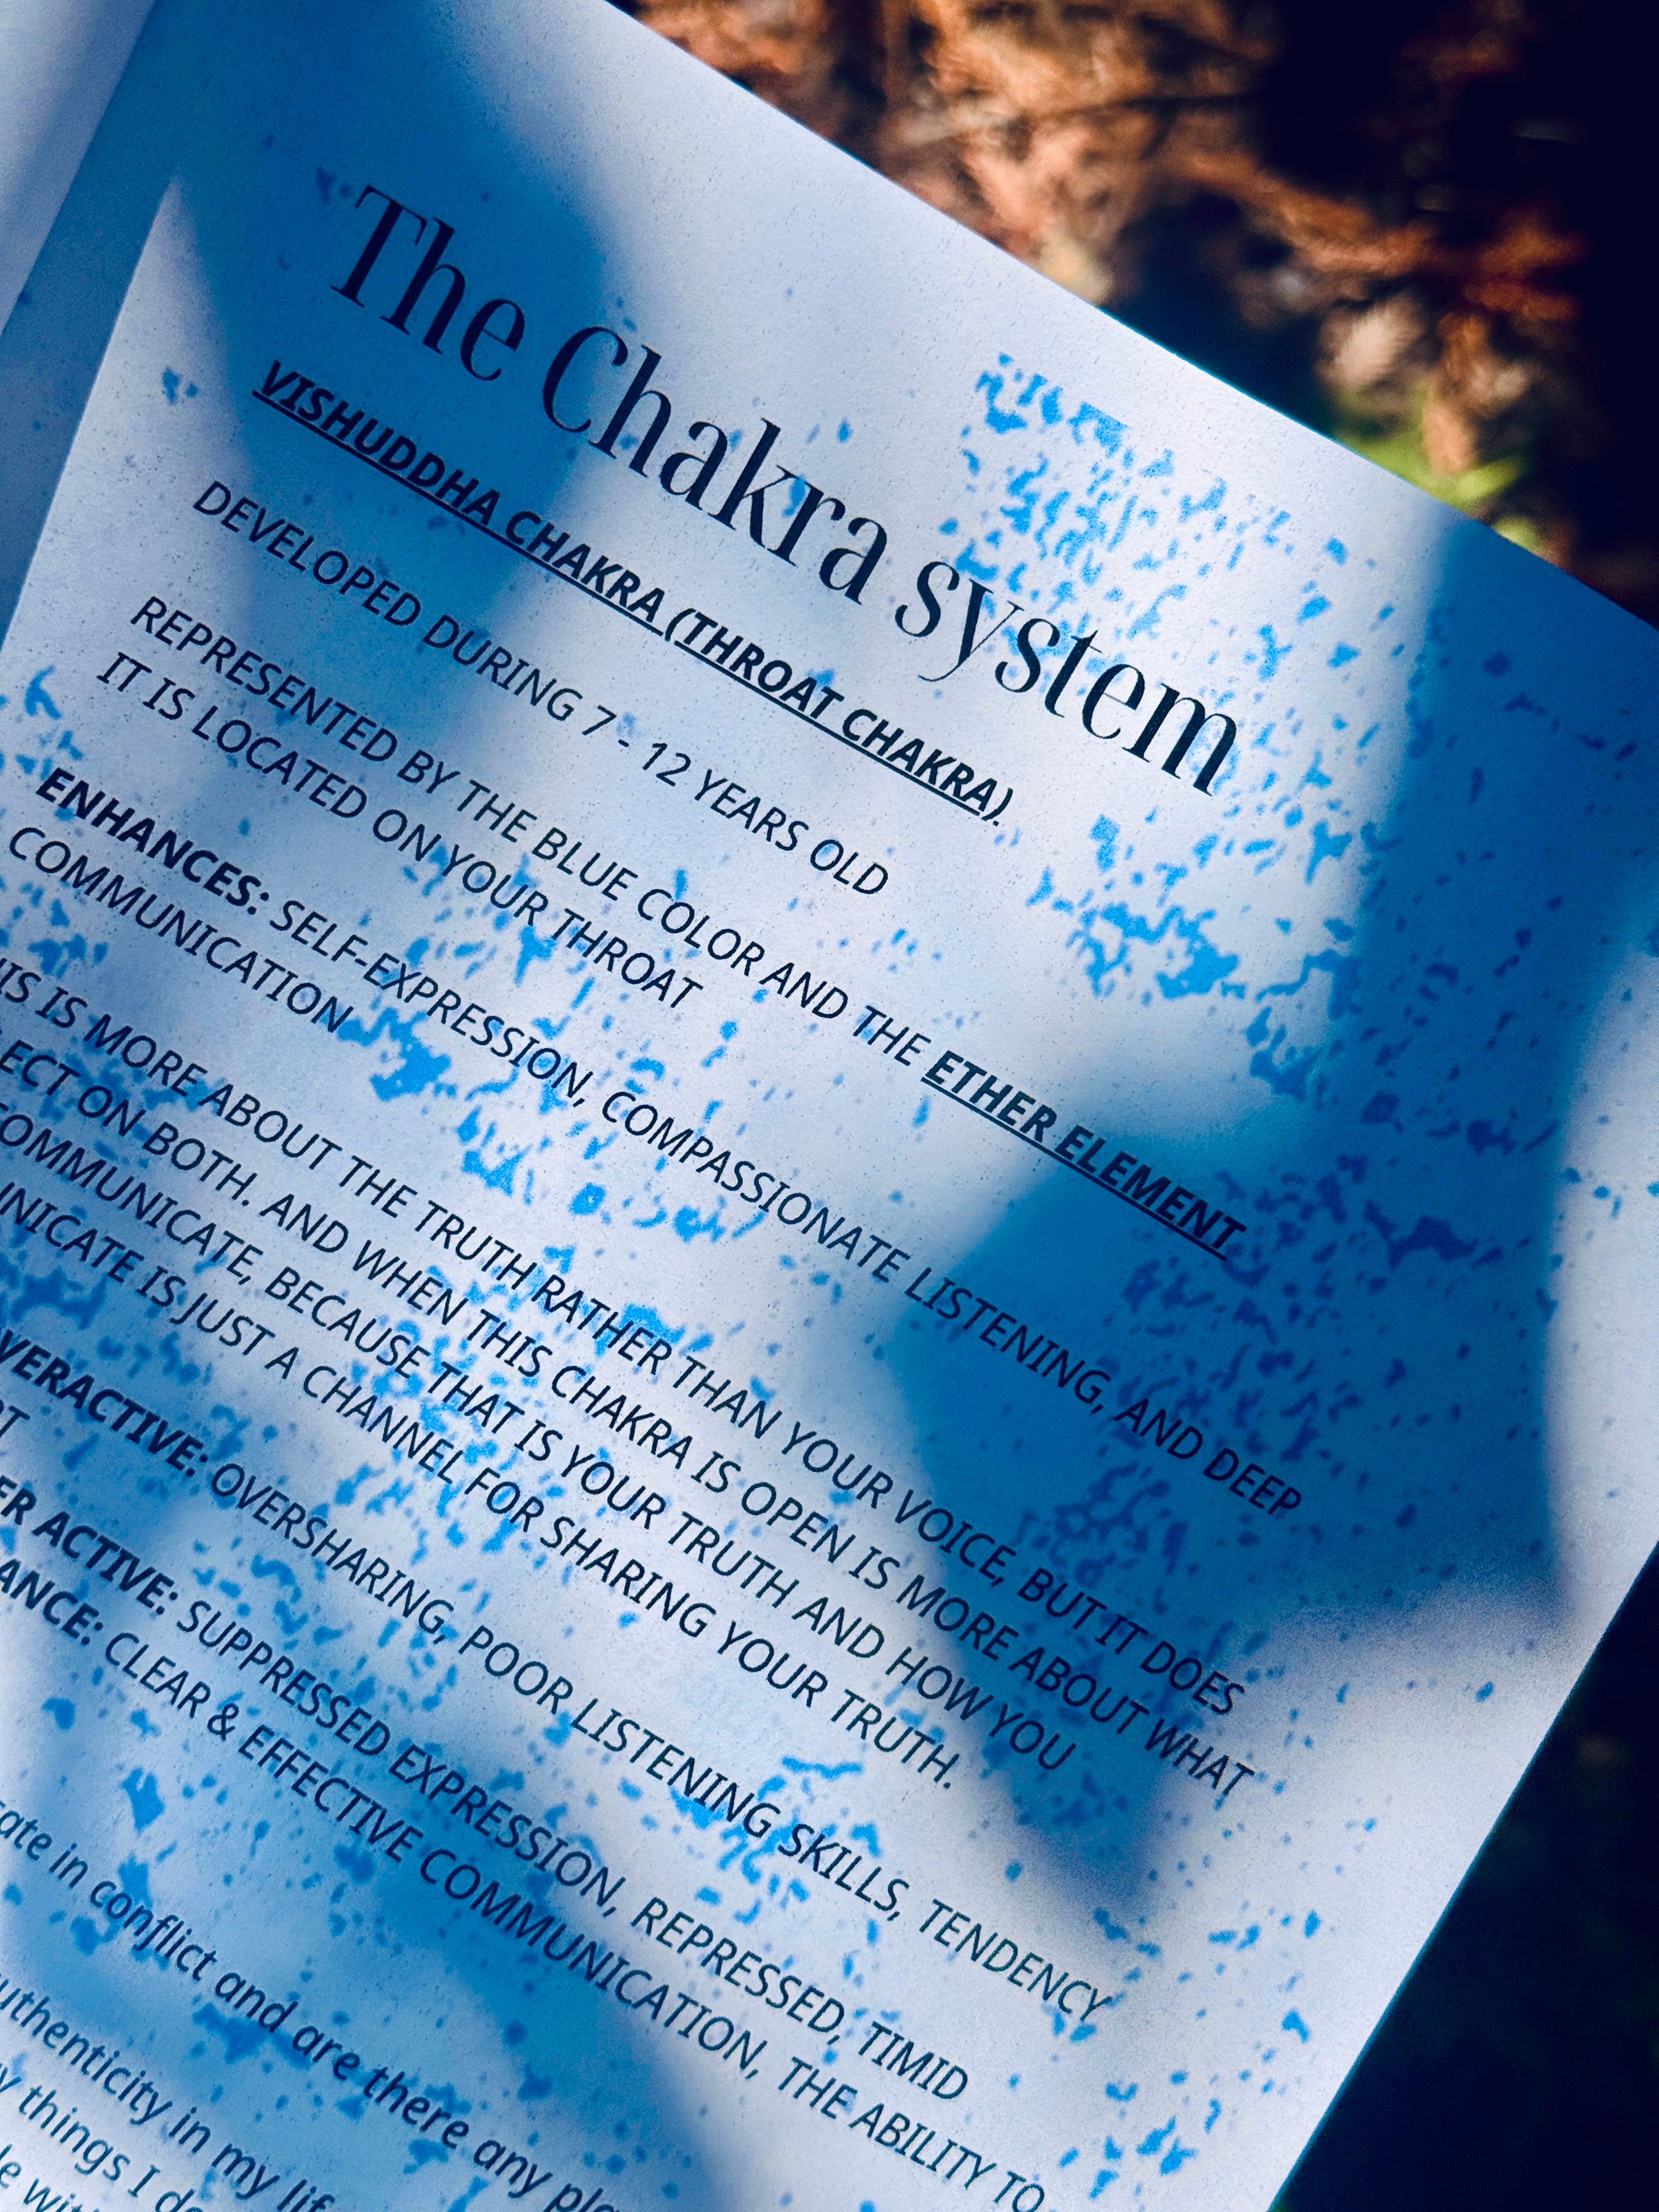 The Chakra system
VISHUDDHA CHAKRA (THROAT CHAKRA)
DEVELOPED DURING 7 - 12 YEARS OLD
REPRESENTED BY THE BLUE COLOR AND THE ETHER ELEMENT
IT IS LOCATED ON YOUR THROAT
ENHANCES: SELF-EXPRESSION, COMPASSIONATE LISTENING, AND DEEP
COMMUNICATION
IS IS MORE ABOUT THE TRUTH RATHER THAN YOUR VOICE, BUT IT DOES
ECT ON BOTH. AND WHEN THIS CHAKRA IS OPEN IS MORE ABOUT WHAT
OMMUNICATE, BECAUSE THAT IS YOUR TRUTH AND HOW YOU
UNICATE IS JUST A CHANNEL FOR SHARING YOUR TRUTH.
VERACTIVE: OVERSHARING, POOR LISTENING SKILLS, TENDENCY
ER ACTIVE: SUPPRESSED EXPRESSION, REPRESSED, TIMID
ANCE: CLEAR & EFFECTIVE COMMUNICATION, THE ABILITY TO
ate in conflict and are there any pla
uthenticity in my lif
y things I do